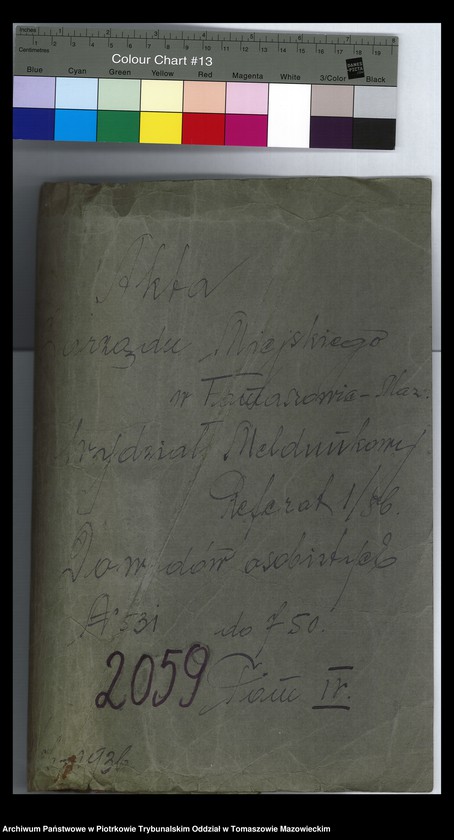 Inches
Centimetres
Colour Chart #13
Blue Cyan Green Yellow Red Magenta White 3/Color Black
DANES PICTA
Akta
Zarządu Miejskiego
w Tomaszowie-Maz.
Wydział Meldunkowy
Referat
Dowodów osobistych
№ 531 do 750.
2059 Tom IV.
Archiwum Państwowe w Piotrkowie Trybunalskim Oddział w Tomaszowie Mazowieckim